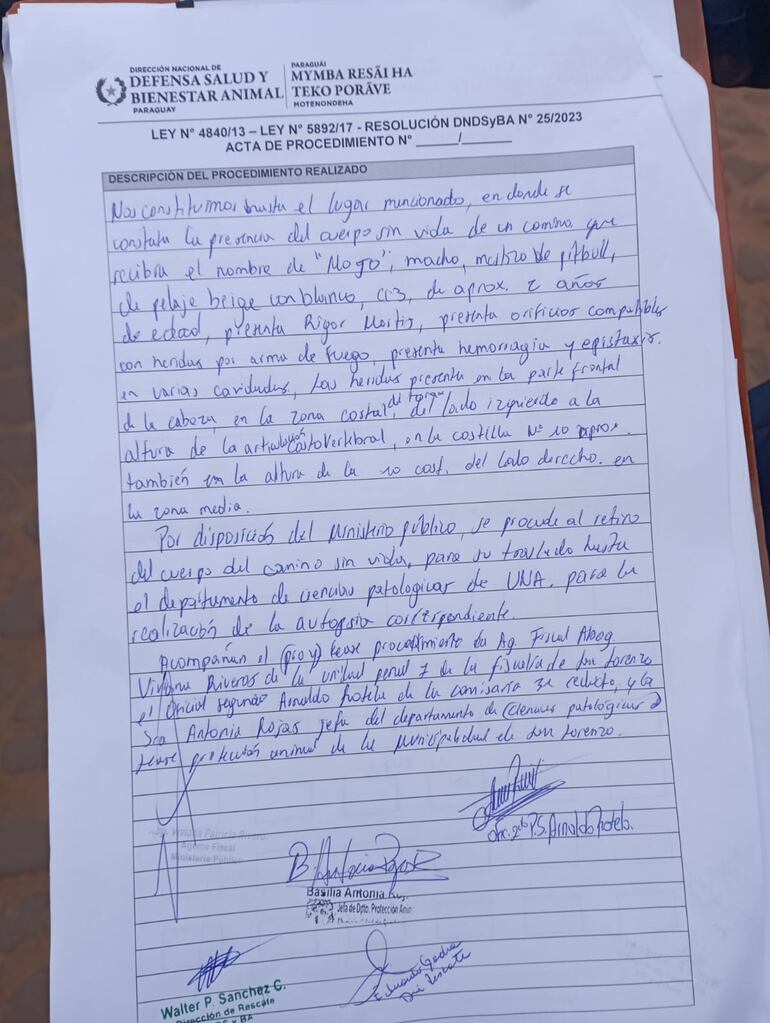 DIRECCIÓN NACIONAL DE
DEFENSA SALUD Y
BIENESTAR ANIMAL
PARAGUAY
PARAGUÁI
MYMBA RESÃI HA
TEKO PORÃVE
MOTENONDEHA
LEY N° 4840/13 – LEY N° 5892/17 - RESOLUCIÓN DNDSyBA N° 25/2023
ACTA DE PROCEDIMIENTO N° ______/______
DESCRIPCIÓN DEL PROCEDIMIENTO REALIZADO
Nos constituimos hasta el lugar mencionado, en donde se
constata la presencia del cuerpo sin vida de un canino que
recibía el nombre de "Mojo", macho, mestizo de pitbull,
de pelaje beige con blanco, cc3, de aprox. 2 años
de edad, presenta Rigor Mortis, presenta orificios compatibles
con heridas por arma de fuego, presenta hemorragia y epistaxis.
en varias cavidades, Las heridas presenta en la parte frontal
de la cabeza, en la zona costal, del lado izquierdo a la
altura de la articulación costovertebral, en la costilla N° 10 aprox.
también en la altura de la 10 cost. del lado derecho. en
la zona media.
Por disposición del Ministerio público, se procede al retiro
del cuerpo del canino sin vida, para su traslado hasta
el departamento de ciencias patologicas de UNA, para la
realización de la autopsia correspondiente.
Acompañan el procedimiento la Ag. Fiscal Abog
Viviana Riveros de la unidad penal 7 de la fiscalia de san Lorenzo
el Oficial segundo Arnaldo Rotela de la comisaría reducto, y la
Sra Antonia Rojas Jefa del departamento de (ciencias patológicas)
protección animal de la Municipalidad de san Lorenzo.
Viviana Patricia Rivero
Agente Fiscal
Ministerio Público
P.S. Arnaldo Rotela.
Basilia Antonia
Jefa de Dpto. Protección Anim
Walter P. Sanchez C.
Dirección de Rescate